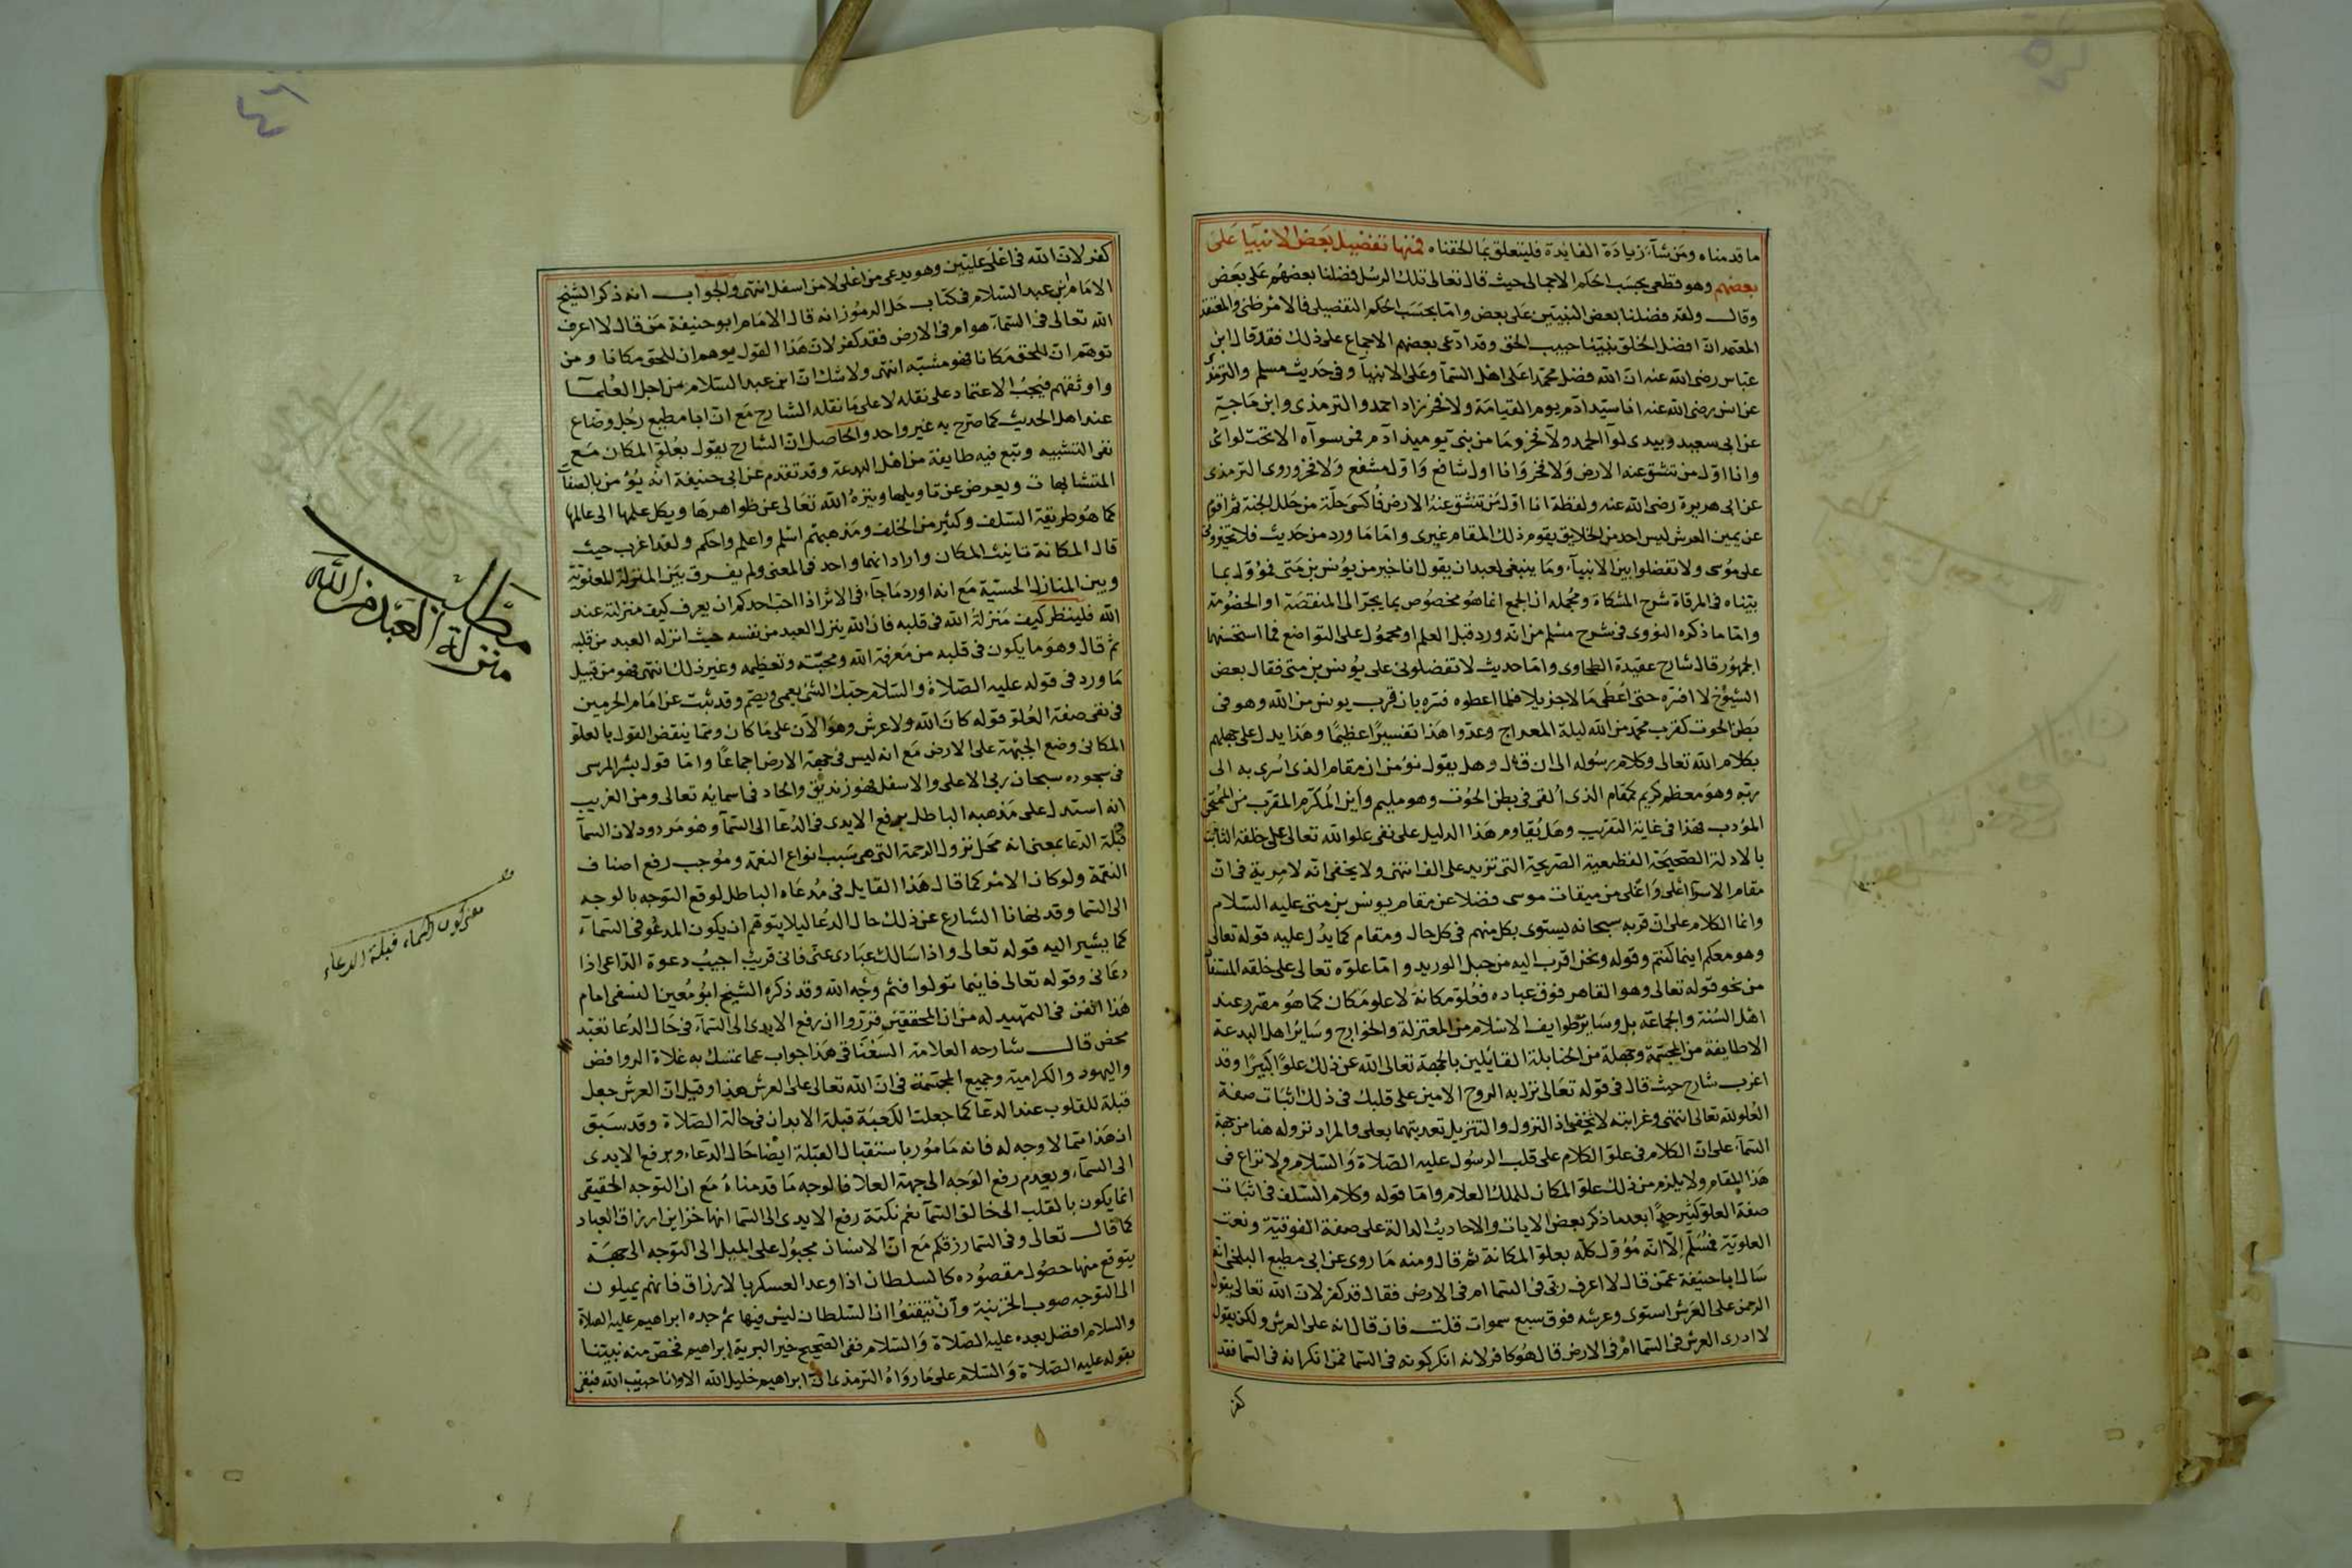 ما قدمناه ومن شآء زيادة الفايدة فليتعلق بما الحقناه فمنها تفضيل بعض الانبيا على
بعضهم وهو قطعى بحسب الحكم الاجمالى حيث قال تعالى تلك الرسل فضلنا بعضهم على بعض
وقال ولقد فضلنا بعض النبيين على بعض واما بحسب الحكم التفصيلى فالامر ظنى والمعتقد
المعتمد ان افضل الخلق نبينا حبيب الحق وقد ادعى بعضهم الاجماع على ذلك فقد قال ابن
عباس رضى الله عنه ان الله فضل محمدا على اهل السمآ وعلى الانبيآ وفى حديث مسلم والترمذى
عن انس رضى الله عنه انا سيد ادم يوم القيامة ولا فخر زاد احمد والترمذى وابن ماجة
عن ابى سعيد وبيدى لوآ الحمد ولا فخر وما من بنى يوميذ ادم فمن سوآه الا تحت لوائى
وانا اول من تنشق عنه الارض ولا فخر وانا اول شافع واول مشفع ولا فخر وروى الترمذى
عن ابى هريرة رضى الله عنه ولفظه انا اول من تنشق عنه الارض فاكسى حلة من حلل الجنة ثم اقوم
عن يمين العرش ليس احد من الخلايق يقوم ذلك المقام غيرى واما ما ورد من حديث فلا تخيرونى
على موسى ولا تفضلوا بين الانبيآء وما ينبغى لعبد ان يقول انا خير من يونس بن متى فمؤول بما
بيناه فى المرقاة شرح المشكاة ومجمله ان الجمع انما هو مخصوص بما يجر الى المنقصة او الخصومة
واما ما ذكره النووى فى شرح مسلم من انه ورد قبل العلم او محمول على التواضع فما استحسنها
الجمهور قال شارح عقيدة الطحاوى واما حديث لا تفضلونى على يونس بن متى فقال بعض
الشيوخ لا افسره حتى اعطى مالا جزيلا فلما اعطوه فسره بان قرب يونس من الله وهو فى
بطن الحوت كقرب محمد من الله ليلة المعراج وعدوا هذا تفسيرا عظيما وهذا يدل على جهلهم
بكلام الله تعالى وكلام رسوله الى ان قال وهل يقول مؤمن ان مقام الذى اسرى به الى
ربه وهو معظم كريم كمقام الذى القى فى بطن الحوت وهو مليم واين المكرم المقرب من الممتحن
المؤدب فهذا فى غاية التقرب وهل يقاوم هذا الدليل على نفى علو الله تعالى على خلقه الثابت
بالادلة الصحيحة القطعية الصريحة التى تزيد على الف انتهى ولا يخفى انه لا مرية فى ان
مقام الاسرا اعلى واغلى من ميقات موسى فضلا عن مقام يونس بن متى عليه السلام
وانما الكلام على ان قربه سبحانه يستوى بكل منهم فى كل حال ومقام كما يدل عليه قوله تعالى
وهو معكم اينما كنتم وقوله ونحن اقرب اليه من حبل الوريد واما علوه تعالى على خلقه المستفاد
من نحو قوله تعالى وهو القاهر فوق عباده فعلو مكانة لا علو مكان كما هو مقرر عند
اهل السنة والجماعة بل وسائر طوايف الاسلام من المعتزلة والخوارج وسائر اهل البدعة
الا طايفة من المجسمة وجهلة من الحنابلة القائلين بالجهة تعالى الله عن ذلك علوا كبيرا وقد
اغرب شارح حيث قال فى قوله تعالى نزل به الروح الامين على قلبك فى ذلك اثبات صفة
العلو لله تعالى انتهى وغرابته لا تخفى اذ النزول والتنزيل تعديتهما بعلى والمراد نزوله هنا من جهة
السمآء على ان الكلام فى علو الكلام على قلب الرسول عليه الصلاة والسلام ولا نزاع فى
هذا المقام ولا يلزم من ذلك علو المكان للملك العلام واما قوله وكلام السلف فى اثبات
صفة العلو كثير جدا بعد ما ذكر بعض الايات والاحاديث الدالة على صفة الفوقية ونعت
العلوية فمسلم الا انه مؤول كله بعلو المكانة ثم قال ومنه ما روى عن ابى مطيع البلخى انه
سال ابا حنيفة عمن قال لا اعرف ربى فى السما ام فى الارض فقال قد كفر لان الله تعالى يقول
الرحمن على العرش استوى وعرشه فوق سبع سموات قلت فان قال انه على العرش ولكن يقول
لا ادرى العرش فى السما ام فى الارض قال هو كافر لانه انكر كونه فى السما فمن انكر انه فى السما فقد
كفر
كفر لان الله فى اعلى عليين وهو يدعى من اعلى لا من اسفل انتهى والجواب انه ذكر الشيخ
الامام ابن عبد السلام فى كتاب حل الرموز انه قال الامام ابو حنيفة من قال لا اعرف
الله تعالى فى السمآء هو ام فى الارض فقد كفر لان هذا القول يوهم ان للحق مكانا ومن
توهم ان للحق مكانا فهو مشبه انتهى ولا شك ان ابن عبد السلام من اجل العلمآ
واوثقهم فيجب الاعتماد على نقله لا على ما نقله الشارح مع ان ابا مطيع رجل وضاع
عند اهل الحديث كما صرح به غير واحد والحاصل ان الشارح يقول بعلو المكان مع
نفى التشبيه وتبع فيه طايفة من اهل البدعة وقد تقدم عن ابى حنيفة انه يؤمن بالصفات
المتشابهات ويعرض عن تاويلها وينزه الله تعالى عن ظواهرها ويكل علمها الى عالمها
كما هو طريقة السلف وكثير من الخلف ومذهبهم اسلم واعلم واحكم ولقد اغرب حيث
قال المكانة تانيث المكان واراد انهما واحد فى المعنى ولم يفرق بين المنزلة المعنوية
وبين المنازل الحسية مع انه اورد ما جآء فى الاثر اذا احب احدكم ان يعرف كيف منزلته عند
الله فلينظر كيف منزلة الله فى قلبه فان الله ينزل العبد من نفسه حيث انزله العبد من قلبه
ثم قال وهو ما يكون فى قلبه من معرفة الله ومحبته وتعظيمه وغير ذلك انتهى فهو من قبيل
ما ورد فى قوله عليه الصلاة والسلام حبك الشئ يعمى ويصم وقد ثبت عن امام الحرمين
فى نفى صفة العلو قوله كان الله ولا عرش وهو الآن على ما كان ومما ينقض القول بالعلو
المكانى وضع الجبهة على الارض مع انه ليس فى جهة الارض اجماعا واما قول بشر المرسى
فى سجوده سبحان ربى الاعلى والاسفل فهو زندقة والحاد فى اسمائه تعالى ومن الغريب
انه استدل على مذهبه الباطل برفع الايدى فى الدعا الى السمآ وهو مردود لان السمآ
قبلة الدعا بمعنى انه محل نزول الرحمة التى هى سبب انواع النعمة وموجب رفع اصناف
النقمة ولو كان الامر كما قال هذا القايل فى مدعاه الباطل لوقع التوجه بالوجه
الى السما وقد نهانا الشارع عن ذلك حال الدعا ليلا يتوهم ان يكون المدعو فى السمآء
كما يشير اليه قوله تعالى واذا سالك عبادى عنى فانى قريب اجيب دعوة الداعى اذا
دعانى وقوله تعالى فاينما تولوا فثم وجه الله وقد ذكره الشيخ ابو معين النسفى امام
هذا الفن فى التمهيد له من ان المحققين قرروا ان رفع الايدى الى السمآء فى حال الدعا تعبد
محض قال شارحه العلامة السغناقى هذا جواب عما تمسك به غلاة الروافض
واليهود والكرامية وجميع المجسمة فى ان الله تعالى على العرش هذا وقيل ان العرش جعل
قبلة للقلوب عند الدعا كما جعلت الكعبة قبلة الابدان فى حالة الصلاة وقد سبق
ان هذا مما لا وجه له فانه مامور باستقبال القبلة ايضا حال الدعاء وبرفع الايدى
الى السمآء وبعدم رفع الوجه الى جهة العلا فالوجه ما قدمناه مع ان التوجه الحقيقى
انما يكون بالقلب الى خالق السمآ نعم نكتة رفع الايدى الى السما انها خزاين ارزاق العباد
كما قال تعالى وفى السما رزقكم مع ان الانسان مجبول على الميل الى التوجه الى جهة
يتوقع منها حصول مقصوده كالسلطان اذا وعد العسكر بالارزاق فانهم يميلون
الى التوجه صوب الخزينة وان تيقنوا ان السلطان ليس فيها ثم جده ابراهيم عليه الصلاة
والسلام افضل بعده عليه الصلاة والسلام ففى الصحيح خير البرية ابراهيم فخص منه نبينا
بقوله عليه الصلاة والسلام على ما رواه الترمذى ان ابراهيم خليل الله الا وانا حبيب الله فبقى
مطلب
منزلة العبد من الله
معنى كون السماء قبلة الدعاء